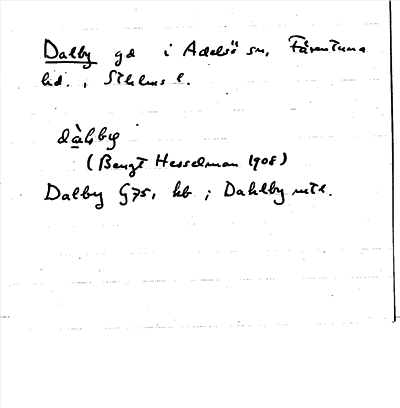 Dalby gd i Adelsö sn, Färentuna
hd., Sthlms l.
dàlby
(Bengt Hesselman 1908)
Dalby G75, kb ; Dahlby mtl.